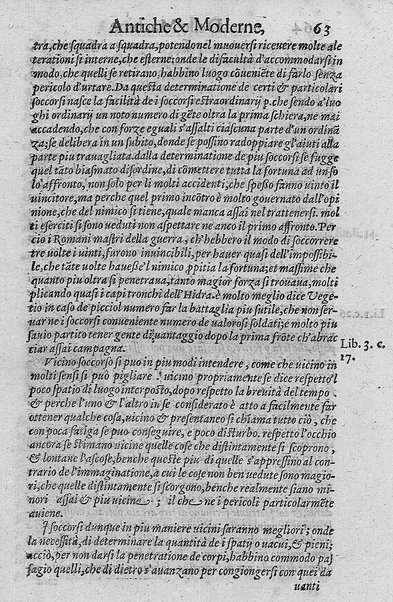 Antiche & Moderne, 63
tra, che squadra a squadra, potendo nel muouersi riceuere molte ale
terationi si interne, che esterne; onde le difacultà d'accommodarsi in
modo, che quelli se retirano, habbino luogo cōueniēte di farlo senza
pericolo d'urtare. Da questa determinatione de certi & particolari
soccorsi nasce la facilità de i soccorsi estraordinarij p. che sendo a'luo
ghi ordinarij un noto numero di gēte oltra la prima schiera, ne mai
accadendo, che con forze eguali s'assalti ciascuna parte d'un ordinā
za; se delibera in un subito, donde se possino radoppiare gl'aiuti alla
parte piu trauagliata. dalla determinatione de piu soccorsi se fugge
quel tāto biasmato disordine, di cōmettere tutta la fortuna ad un so
lo affronto, non solo per li molti accidenti, che spesso fanno uinto il
uincitore, ma perche quel primo incōtro è molto gouernato dall'opi
nione, che del nimico si tiene, quale manca assai nel trattenersi. mol
ti eserciti si sono ueduti non aspettare ne anco il primo affronto. Per
cio i Romani mastri della guerra, ch'hebbero il modo di soccorrere
tre uolte i uinti, furono inuincibili, per hauer quasi dell'impossibi-
le, che tāte uolte hauesse'l nimico ppitia la fortuna; et massime che
quanto piu oltra si penetraua, tanto magior forza si trouaua, molti
plicando quasi i capi tronchi dell'Hidra. è molto meglio dice Vege
tio in caso de picciol numero far la battaglia piu sutile, che non ser-
uar ne i soccorsi conueniente numero de ualorosi soldati; e molto piu
sauio partito tener gente d'auantaggio dopo la prima frōte ch'abrac
ciar assai campagna.
Lib. 3. c.
17.
Vicino soccorso si puo in piu modi intendere, come che uicino in
molti sensi si può pigliare: uicino propriamente se dice rispetto'l
poco spatio di luogo interposto, dopo rispetto la breuità del tempo
& perche l'uno & l'altro in se considerato è atto a facilmente far
ottener qualche cosa, uicino & presentaneo si chiama tutto ciò, che
con poca fatiga se puo conseguire, e poco disturbo. rispetto l'occhio
ancora se stimano uicine quelle cose che distintamente si scoprono,
& lontane l'ascose, benche queste piu di quelle s'appressino al con-
trario de l'immaginatione, a cui le cose non ben uedute sono magio-
ri, che quelle distintamente si scorgono, benche realmente siano mi-
nori assai & piu uicine; il che ne i pericoli particolarmēte
auiene.
I soccorsi dunque in piu maniere uicini saranno megliori; onde
la necessità, di determinare la quantità de i spatij o uacui, & pieni;
acciò, per non darsi la penetratione de corpi, habbino commodo pas
sagio quelli, che di dietro s'auanzano per congiongersi con quei da
uanti